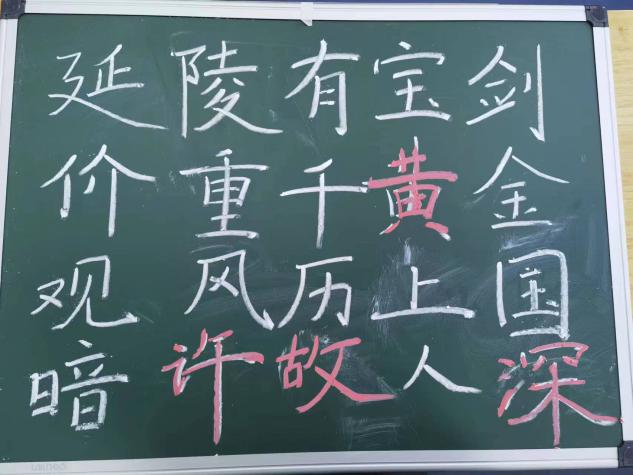 延陵有宝剑
价重千黄金
观风历上国
暗许故人深